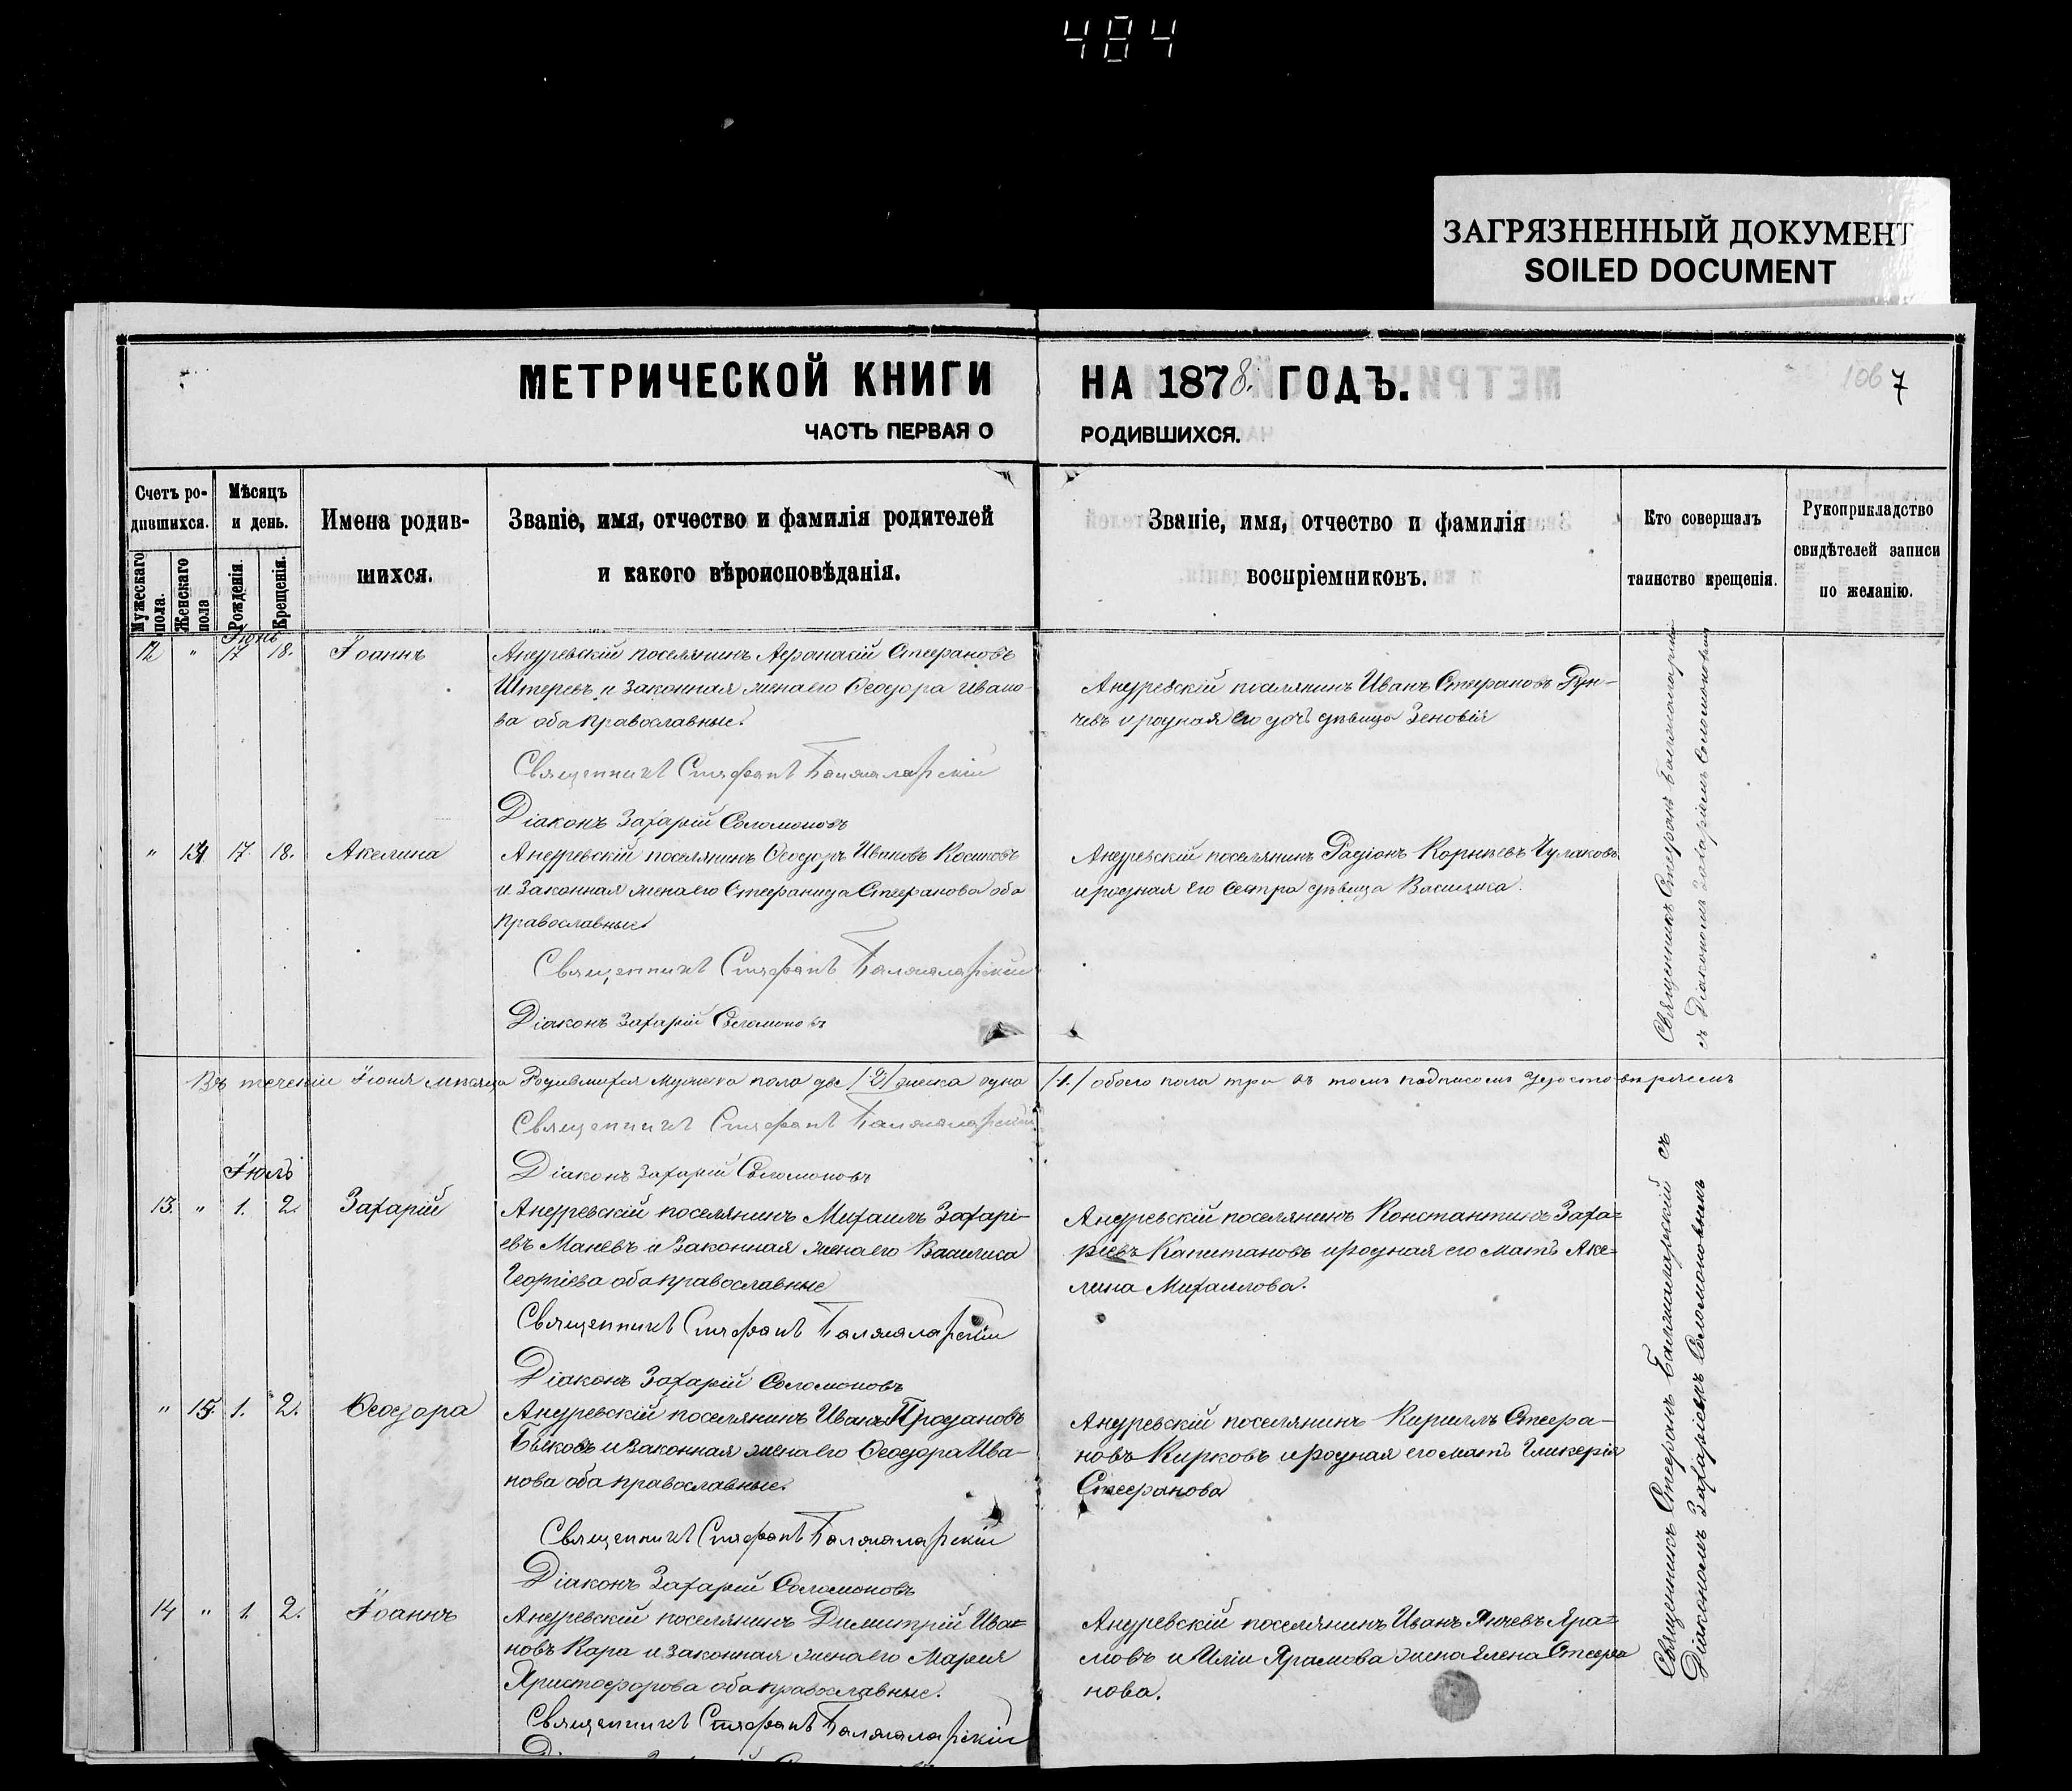 484
ЗАГРЯЗНЕННЫЙ ДОКУМЕНТ
SOILED DOCUMENT
МЕТРИЧЕСКОЙ КНИГИ НА 1878. ГОДЪ.
106 7
ЧАСТЬ ПЕРВАЯ О РОДИВШИХСЯ.
Счетъ родившихся.
Мужескаго пола.
Женскаго пола
Мѣсяцъ и день.
Рожденія.
Крещенія.
Имена родившихся.
Званіе, имя, отчество и фамилія родителей
и какого вѣроисповѣданія.
Званіе, имя, отчество и фамилія
воспріемниковъ.
Кто совершалъ
таинство крещенія.
Рукоприкладство
свидѣтелей записи
по желанію.
Іюнь
12 " 17 18. Іоаннъ
Андревскій поселянинъ Афанасій Стефановъ
Штеревъ и законная жена его Ѳеодора Ивано-
ва оба православные.
Священникъ Стефанъ Балжаларскій
Діаконъ Захарій Соломоновъ
Андревскій поселянинъ Иванъ Стефановъ Гун-
чевъ и родная его дочь дѣвица Зеновія
" 14 17 18. Акелина
Андревскій поселянинъ Ѳеодоръ Ивановъ Косиковъ
и законная жена его Стефанида Стефанова оба
православные
Священникъ Стефанъ Балжаларскій
Діаконъ Захарій Соломоновъ
Андревскій поселянинъ Радіонъ Корнѣевъ Чулаковъ
и родная его сестра дѣвица Василиса.
Священникъ Стефанъ Балжаларскій
съ Діакономъ Захаріемъ Соломоновымъ
Въ теченіи Іюня мѣсяца родившихся мужеска пола два /2/ женска одна /1./ обоего пола три въ томъ подписомъ удостовѣряемъ
Священникъ Стефанъ Балжаларскій
Діаконъ Захарій Соломоновъ
Іюль
13. " 1. 2 Захарій
Андревскій поселянинъ Михаилъ Захарі-
евъ Маневъ и законная жена его Василиса
Георгіева оба православные
Священникъ Стефанъ Балжаларскій
Діаконъ Захарій Соломоновъ
Андревскій поселянинъ Константинъ Заха=
ріевъ Капитановъ и родная его мать Аке=
лина Михаилова.
" 15. 1. 2. Ѳеодора
Андревскій поселянинъ Иванъ Продановъ
Быковъ и законная жена его Ѳеодора Ива-
нова оба православные.
Священникъ Стефанъ Балжаларскій
Діаконъ Захарій Соломоновъ
Андревскій поселянинъ Кириллъ Стефа-
новъ Кирковъ и родная его мать Гликерія
Стефанова
14 " 1. 2. Іоаннъ
Андревскій поселянинъ Димитрій Ива=
новъ Кара и законная жена его Марія
Христофорова оба православные.
Священникъ Стефанъ Балжаларскій
Андревскій поселянинъ Иванъ Янчевъ Яра=
мовъ и Иліи Ярамова жена Елена Стефа
нова.
Священникъ Стефанъ Балжаларскій съ
Діакономъ Захаріемъ Соломоновымъ